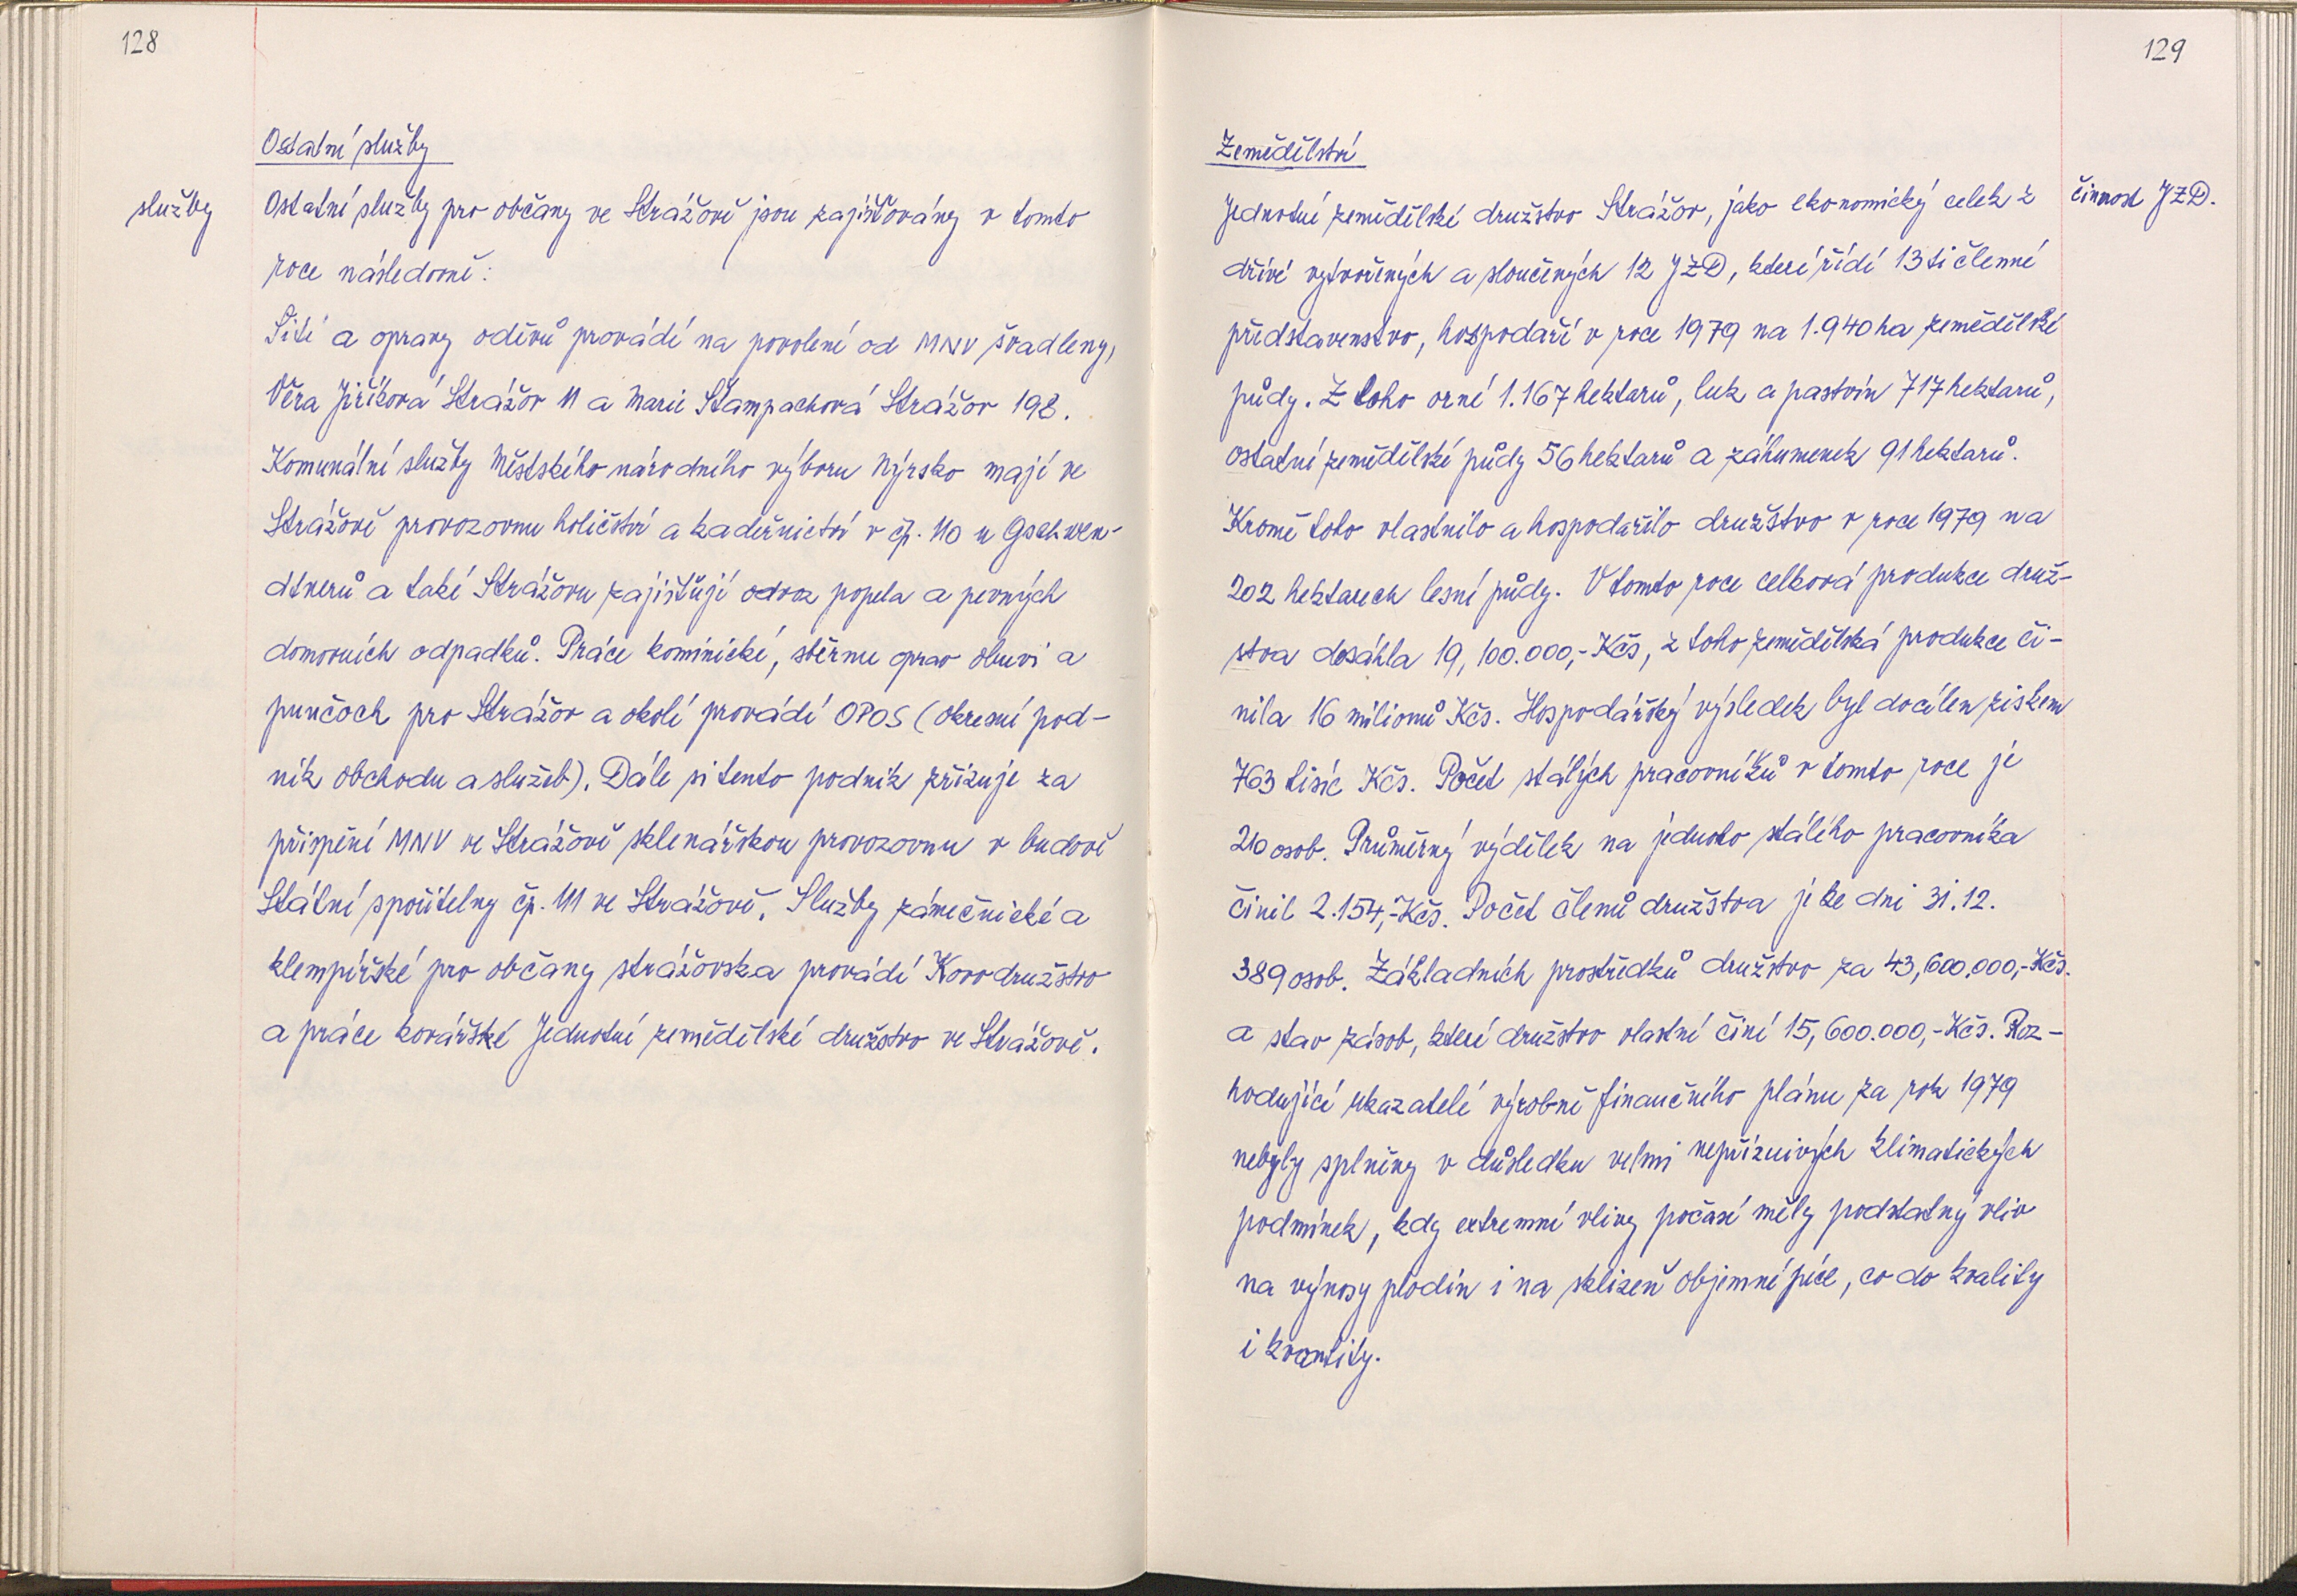 128
Ostatní služby
služby
Ostatní služby pro občany ve Strážově jsou zajišťovány v tomto
roce následovně:
Šití a opravy oděvů provádí na povolení od MNV švadleny,
Věra Jiříková Strážov 11 a Marie Štampachová Strážov 198.
Komunální služby Městského národního výboru Nýrsko mají ve
Strážově provozovnu holičství a kadeřnictví v čp. 110 u Gschwen-
dtnerů a také Strážovu zajišťují odvoz popela a pevných
domovních odpadků. Práce kominické, sběrnu oprav obuvi a
punčoch pro Strážov a okolí provádí OPOS (okresní pod-
nik obchodu a služeb). Dále si tento podnik zřizuje za
přispění MNV ve Strážově sklenářskou provozovnu v budově
Státní spořitelny čp. 111 ve Strážově. Služby zámečnické a
klempířské pro občany strážovska provádí Kovodružstvo
a práce kovářské Jednotné zemědělské družstvo ve Strážově.
129
Zemědělství
činnost JZD.
Jednotné zemědělské družstvo Strážov, jako ekonomický celek z
dříve vytvořených a sloučených 12 JZD, které řídí 13ti členné
představenstvo, hospodaří v roce 1979 na 1.940 ha zemědělské
půdy. Z toho orné 1.167 hektarů, luk a pastvin 717 hektarů,
ostatní zemědělské půdy 56 hektarů a záhumenek 91 hektarů.
Kromě toho vlastnilo a hospodařilo družstvo v roce 1979 na
202 hektarech lesní půdy. V tomto roce celková produkce druž-
stva dosáhla 19,100.000,- Kčs, z toho zemědělská produkce či-
nila 16 milionů Kčs. Hospodářský výsledek byl docílen ziskem
763 tisíc Kčs. Počet stálých pracovníků v tomto roce je
210 osob. Průměrný výdělek na jednoho stálého pracovníka
činil 2.154,- Kčs. Počet členů družstva je ke dni 31.12.
389 osob. Základních prostředků družstvo za 43,600.000,- Kčs.
a stav zásob, které družstvo vlastní činí 15,600.000,- Kčs. Roz-
hodující ukazatelé výrobně finančního plánu za rok 1979
nebyly splněny v důsledku velmi nepříznivých klimatických
podmínek, kdy extremní vlivy počasí měly podstatný vliv
na výnosy plodin i na sklizeň objemné píce, co do kvality
i kvantity.